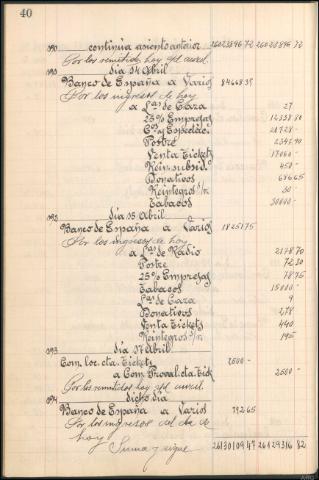 40
390 continúa asiento anterior 26023896 72 26023896 72
Por los remitidos hoy
día 14 Abril
Banco de España a Varios 84668 35
Por los ingresos de hoy
a L.as de Caza 27
25% Empresas
C.ª y Expedic.
Postre
Venta Tickets
Rein. subsid.º 458 -
Donativos 686 65
Reintegros s/n 30 -
Tabacos 30000 -
392 día 15 Abril
Banco de España a Varios 18251 75
Por los ingresos de hoy
a L.as de Radio 2178 70
Postre 72 30
25% Empresas 78 75
Tabacos 15000 -
L.as de Caza 9
Donativos 278
Venta Tickets 440
Reintegros s/n 195
393 día 17 Abril
Com. loc. cta. Tickt. 2500 -
a Com. Proval. cta. Tick 2500 -
Por los remitidos hoy
394 dicho día
Banco de España a Varios 792 65
Por los ingresos del día de
hoy
Suma y sigue 26130109 47 26129316 82